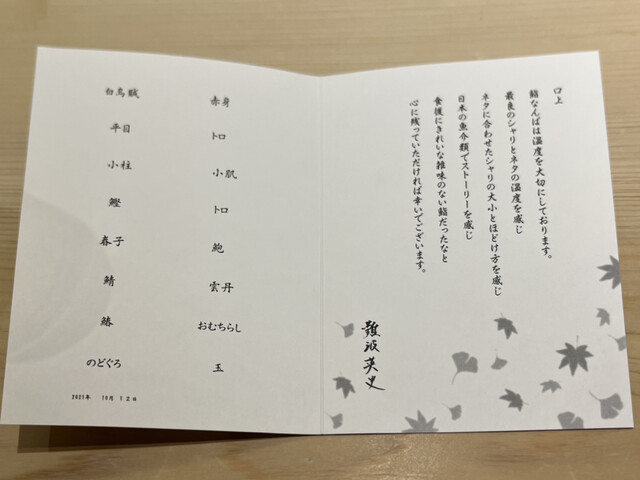 口上
鮨なんばは温度を大切にしております。
最良のシャリとネタの温度を感じ
ネタに合わせたシャリの大小とほどけ方を感じ
日本の魚介類でストーリーを感じ
食後にきれいな雑味のない鮨だったなと
心に残っていただければ幸いでございます。
難波英史
赤身
トロ
小肌
トロ
鮑
雲丹
おむちらし
玉
白烏賊
平目
小柱
鰹
春子
鯖
鰆
のどぐろ
2021年 10月 12日